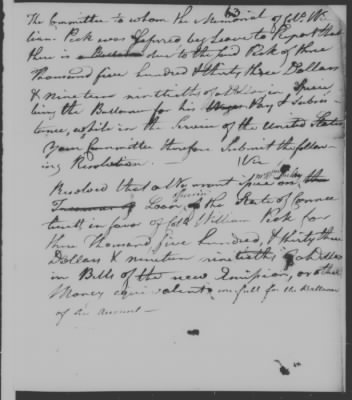 63
The Committee to whom the Memorial of Colo. Wil
liam Peck was referred beg Leave to Report that
there is a Ballance due to the said Peck of three
Thousand five hundred & thirty three Dollars
& Nineteen ninetieths of a Dollar in Specie
being the Ballance for his Pay & Subsis-
tence, while in the Service of the United States
Your Committee therefore Submit the follow-
ing Resolution — Viz
Resolved that a Warrant Issue on the
Treasurer of Loan of the State of Connec
ticutt in favor of Colo. William Peck for
three thousand, five hundred, & thirty three
Dollars & nineteen ninetieths of a Dollar
in Bills of the new Emission, or other
Money equivalent in full for the Ballance
of his Account —